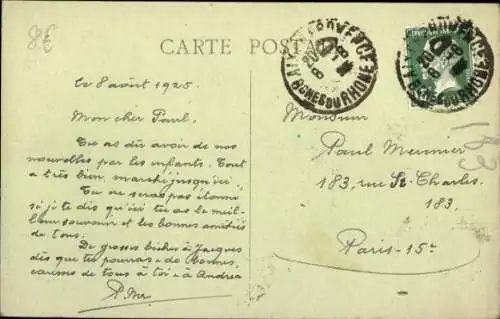 8€
CARTE POSTALE
AIX EN PROVENCE
BCHES DU RHONE
Ce 8 août 1925
Mon cher Paul.
Tu as dû avoir de nos
nouvelles par les enfants. Tout
a très bien marché jusqu'ici.
Tu ne seras pas étonné
si je te dis qu'ici tu as le meil-
leur souvenir et les bonnes amitiés
de tous.
De grosses bises à Jacques
dès que tu pourras de
caresses de tous à toi & à Andrea
Monsieur
Paul Meunier
183, rue St-Charles.
183.
Paris-15e
183